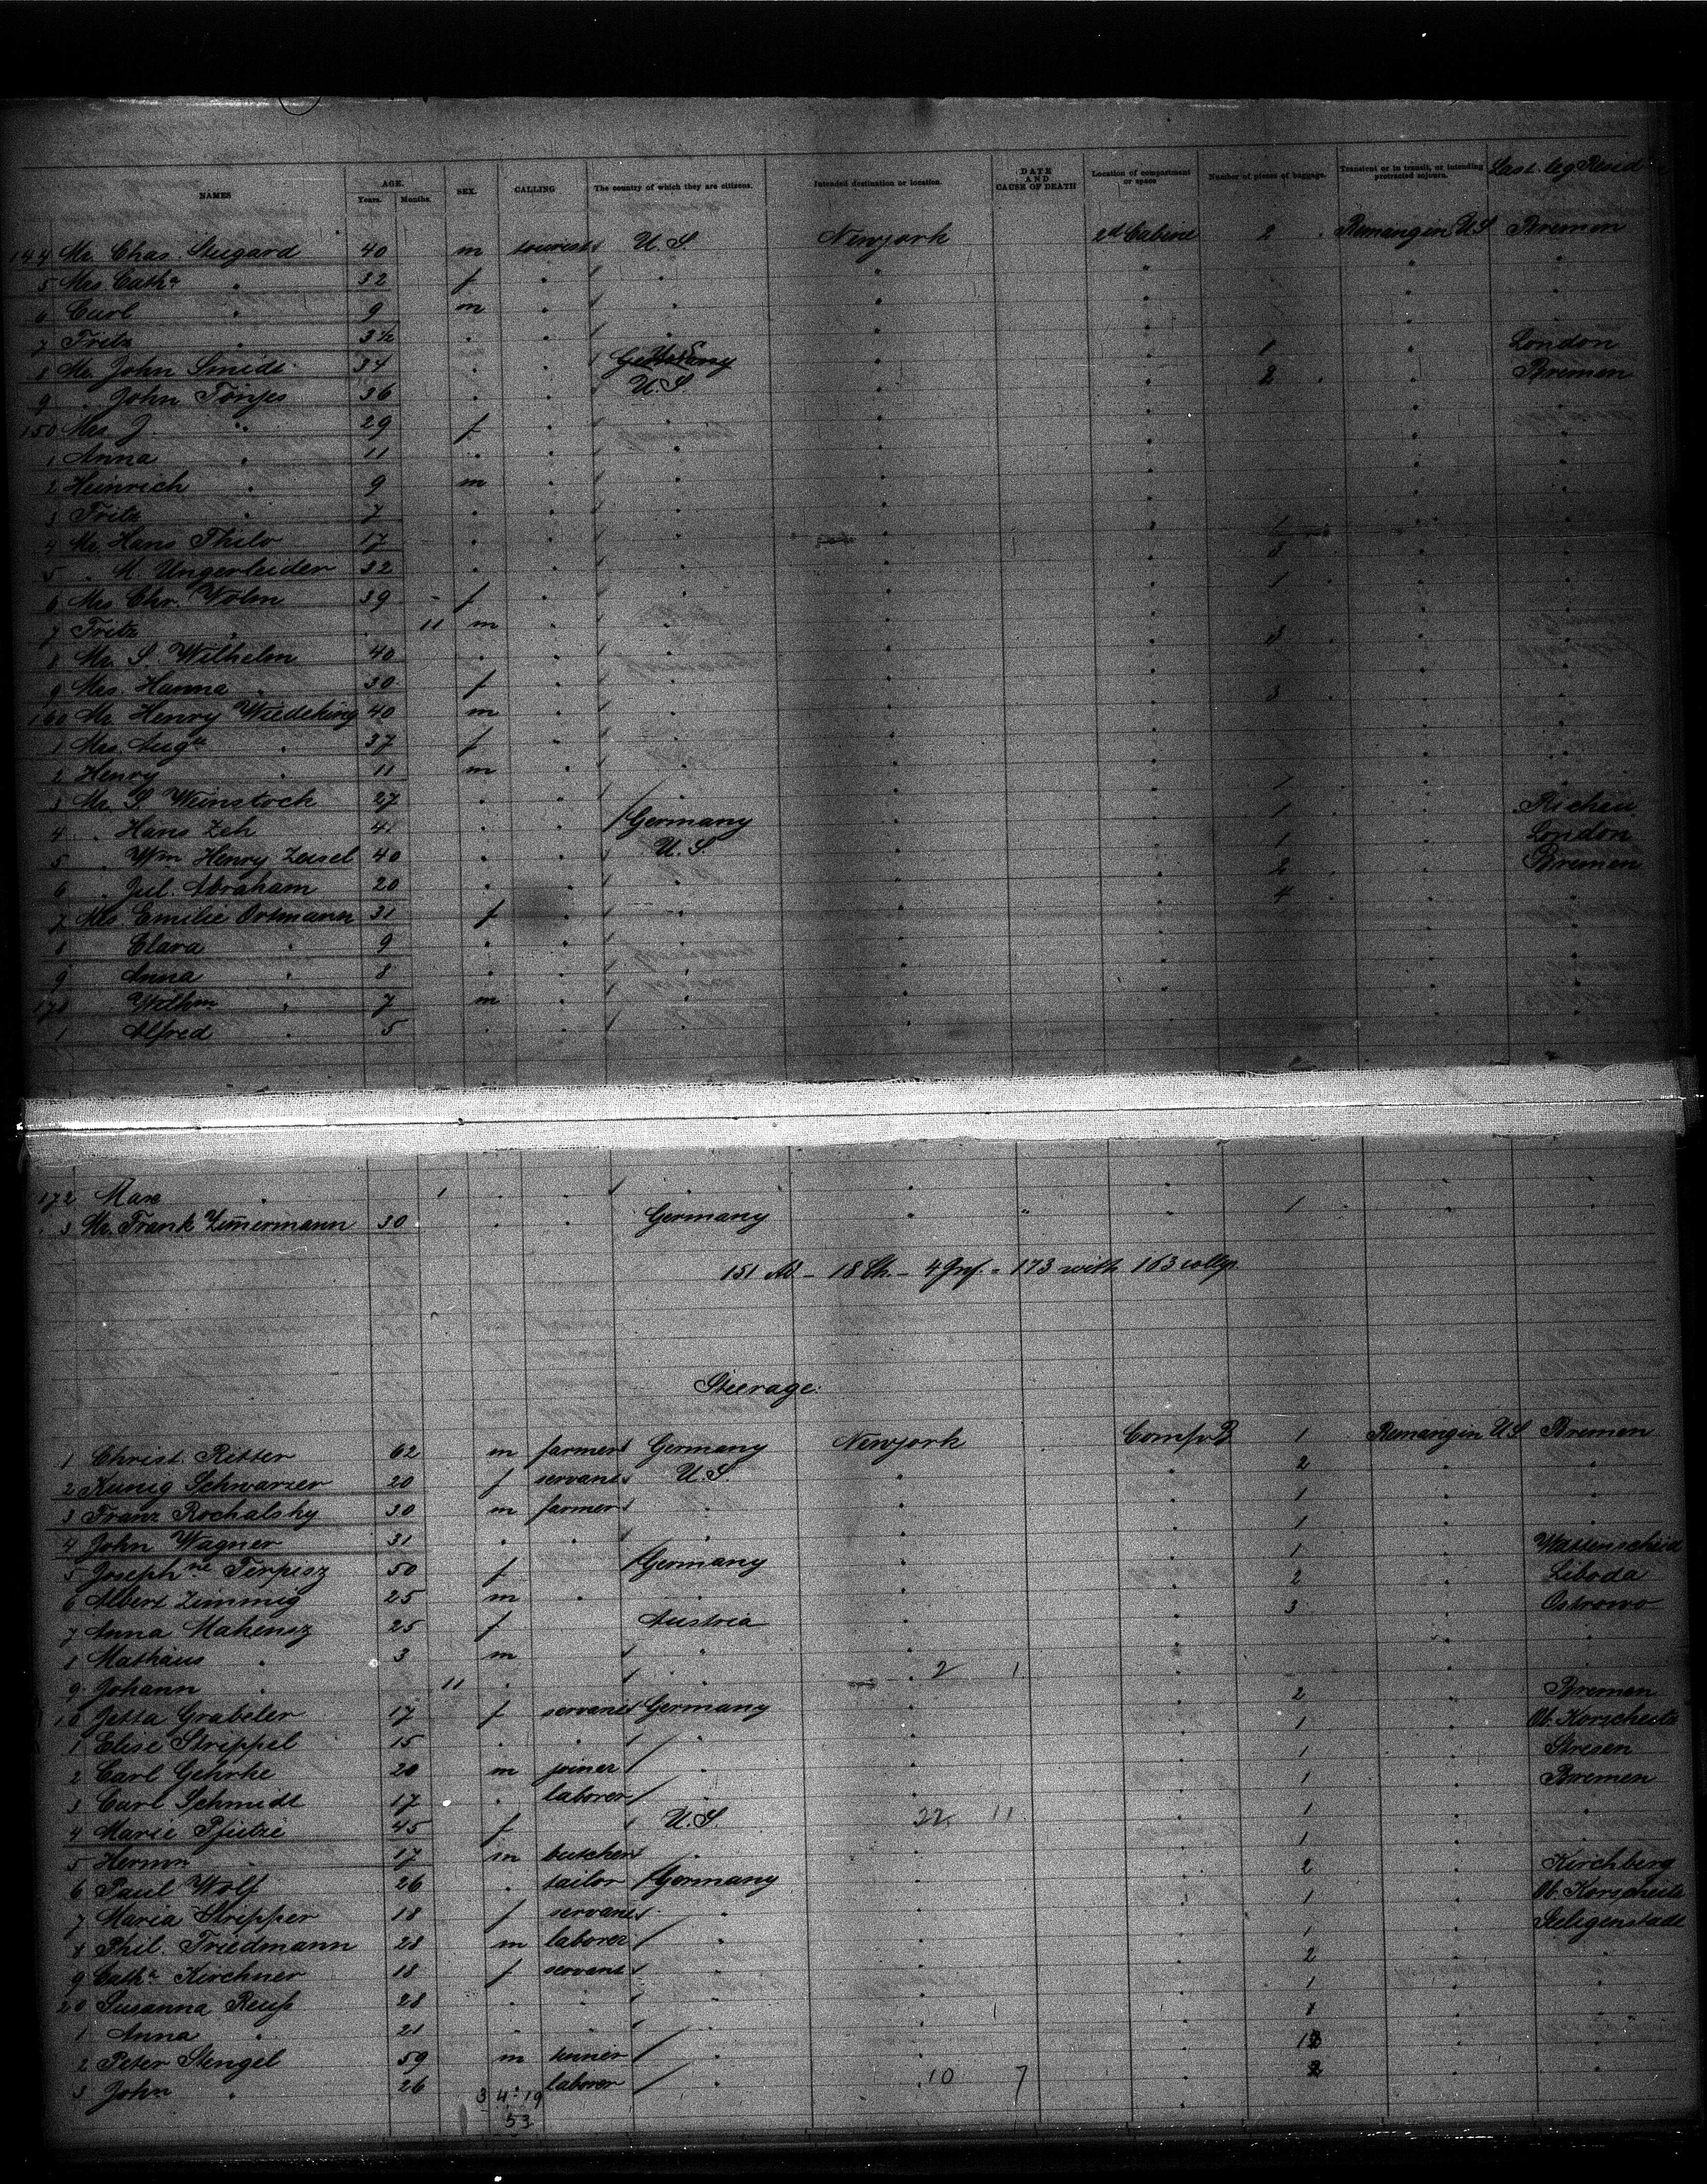 NAMES AGE. Years. Months. SEX. CALLING The country of which they are citizens. Intended destination or location. DATE AND CAUSE OF DEATH Location of compartment or space Number of pieces of baggage. Transient or in transit, or intending protracted sojourn. Last leg Resid
144 Mr. Chas. Steigard 40 m tourist U.S Newyork 2d Cabine 2 Remaingin US Bremen
5 Mrs. Cath. " 32 f " " " " " "
6 Carl " 9 m " " " " " "
7 Fritz " 3½ " " " " " " "
8 Mr. John Smidt 34 " " U.S " " 1 " London
9 " John Tönjes 36 " " U.S " " 2 " Bremen
150 Mrs. J. " 29 f " " " " " "
1 Anna " 11 " " " " " " "
2 Heinrich " 9 m " " " " " "
3 Fritz " 7 " " " " " " "
4 Mr. Hans Thilo 17 " " " " 1 " "
5 " M. Ungerleider 32 " " " " " 3 " "
6 Mrs. Chr. Wolm 39 - f " " " " 1 " "
7 Fritz " 11 m " " " " " "
8 Mr. S. Wilhelm 40 " " " " " 3 " "
9 Mrs. Hanna " 30 f " " " " " "
160 Mr. Henry Wiedeking 40 m " " " " 3 " "
1 Mrs. Aug. " 37 f " " " " " "
2 Henry " 11 m " " " " " "
3 Mr. S. Weinstock 27 " " " " " 1 " "
4 " Hans Zeh 41 " " Germany " " 1 " Richen
5 " Wm Henry Zeisel 40 " " U.S. " " 1 " London
6 " Jul. Abraham 20 " " " " " 2 " Bremen
7 Mrs. Emilie Ortmann 31 f " " " " 4 " "
8 Clara " 9 " " " " " " "
9 Anna " 8 " " " " " " "
170 Wilhm " 7 m " " " " " "
1 Alfred " 5 " " " " " " "
172 Max " 1 " " " " " " "
3 Mr. Frank Zimermann 30 " " Germany " " 1 " "
151 Ad - 18 Ch. - 4 Inf. = 173 with 163 collys
Steerage:
1 Christ. Ritter 62 m farmer Germany Newyork Comp. B 1 Remaingin US Bremen
2 Kunig Schwarzer 20 f servant U.S. " " 2 " "
3 Franz Rochalsky 30 m farmer " " " 1 " "
4 John Wagner 31 " " " " " 1 " "
5 Josephne Terpisz 50 f Germany " " 1 " Wattenscheid
6 Albert Zimmig 25 m " " " " 2 " Liboda
7 Anna Makensz 25 f Austria " " 3 " Ostrowo
8 Mathäus " 3 m " " " " "
9 Johann " 11 " " " 2 1 " " "
10 Jetta Grabeler 17 f servant Germany " " 2 " Bremen
1 Elise Strippel 15 " " " " " 1 " Ob. Korscheits
2 Carl Gehrke 20 m joiner " " " 1 " Stresen
3 Carl Schmidt 17 " laborer " " " 1 " Bremen
4 Marie Pfütze 45 f U.S. 22 11 " 1 " "
5 Hermn " 17 m butcher " " " 1 " "
6 Paul Wolf 26 " tailor Germany " " 2 " Kirchberg
7 Maria Stripper 18 f servant " " " 1 " Ob. Korscheits
8 Phil. Friedmann 28 m laborer " " " 1 " Seligenstadt
9 Cath. Kirchner 18 f servant " " " 2 " "
20 Susanna Reuß 28 " " " " " 1 " "
1 Anna " 21 " " " " " 1 " "
2 Peter Stengel 59 m " " " " "
3 John " 26 laborer " 10 7 " 2 " "
3 4 : 19
53